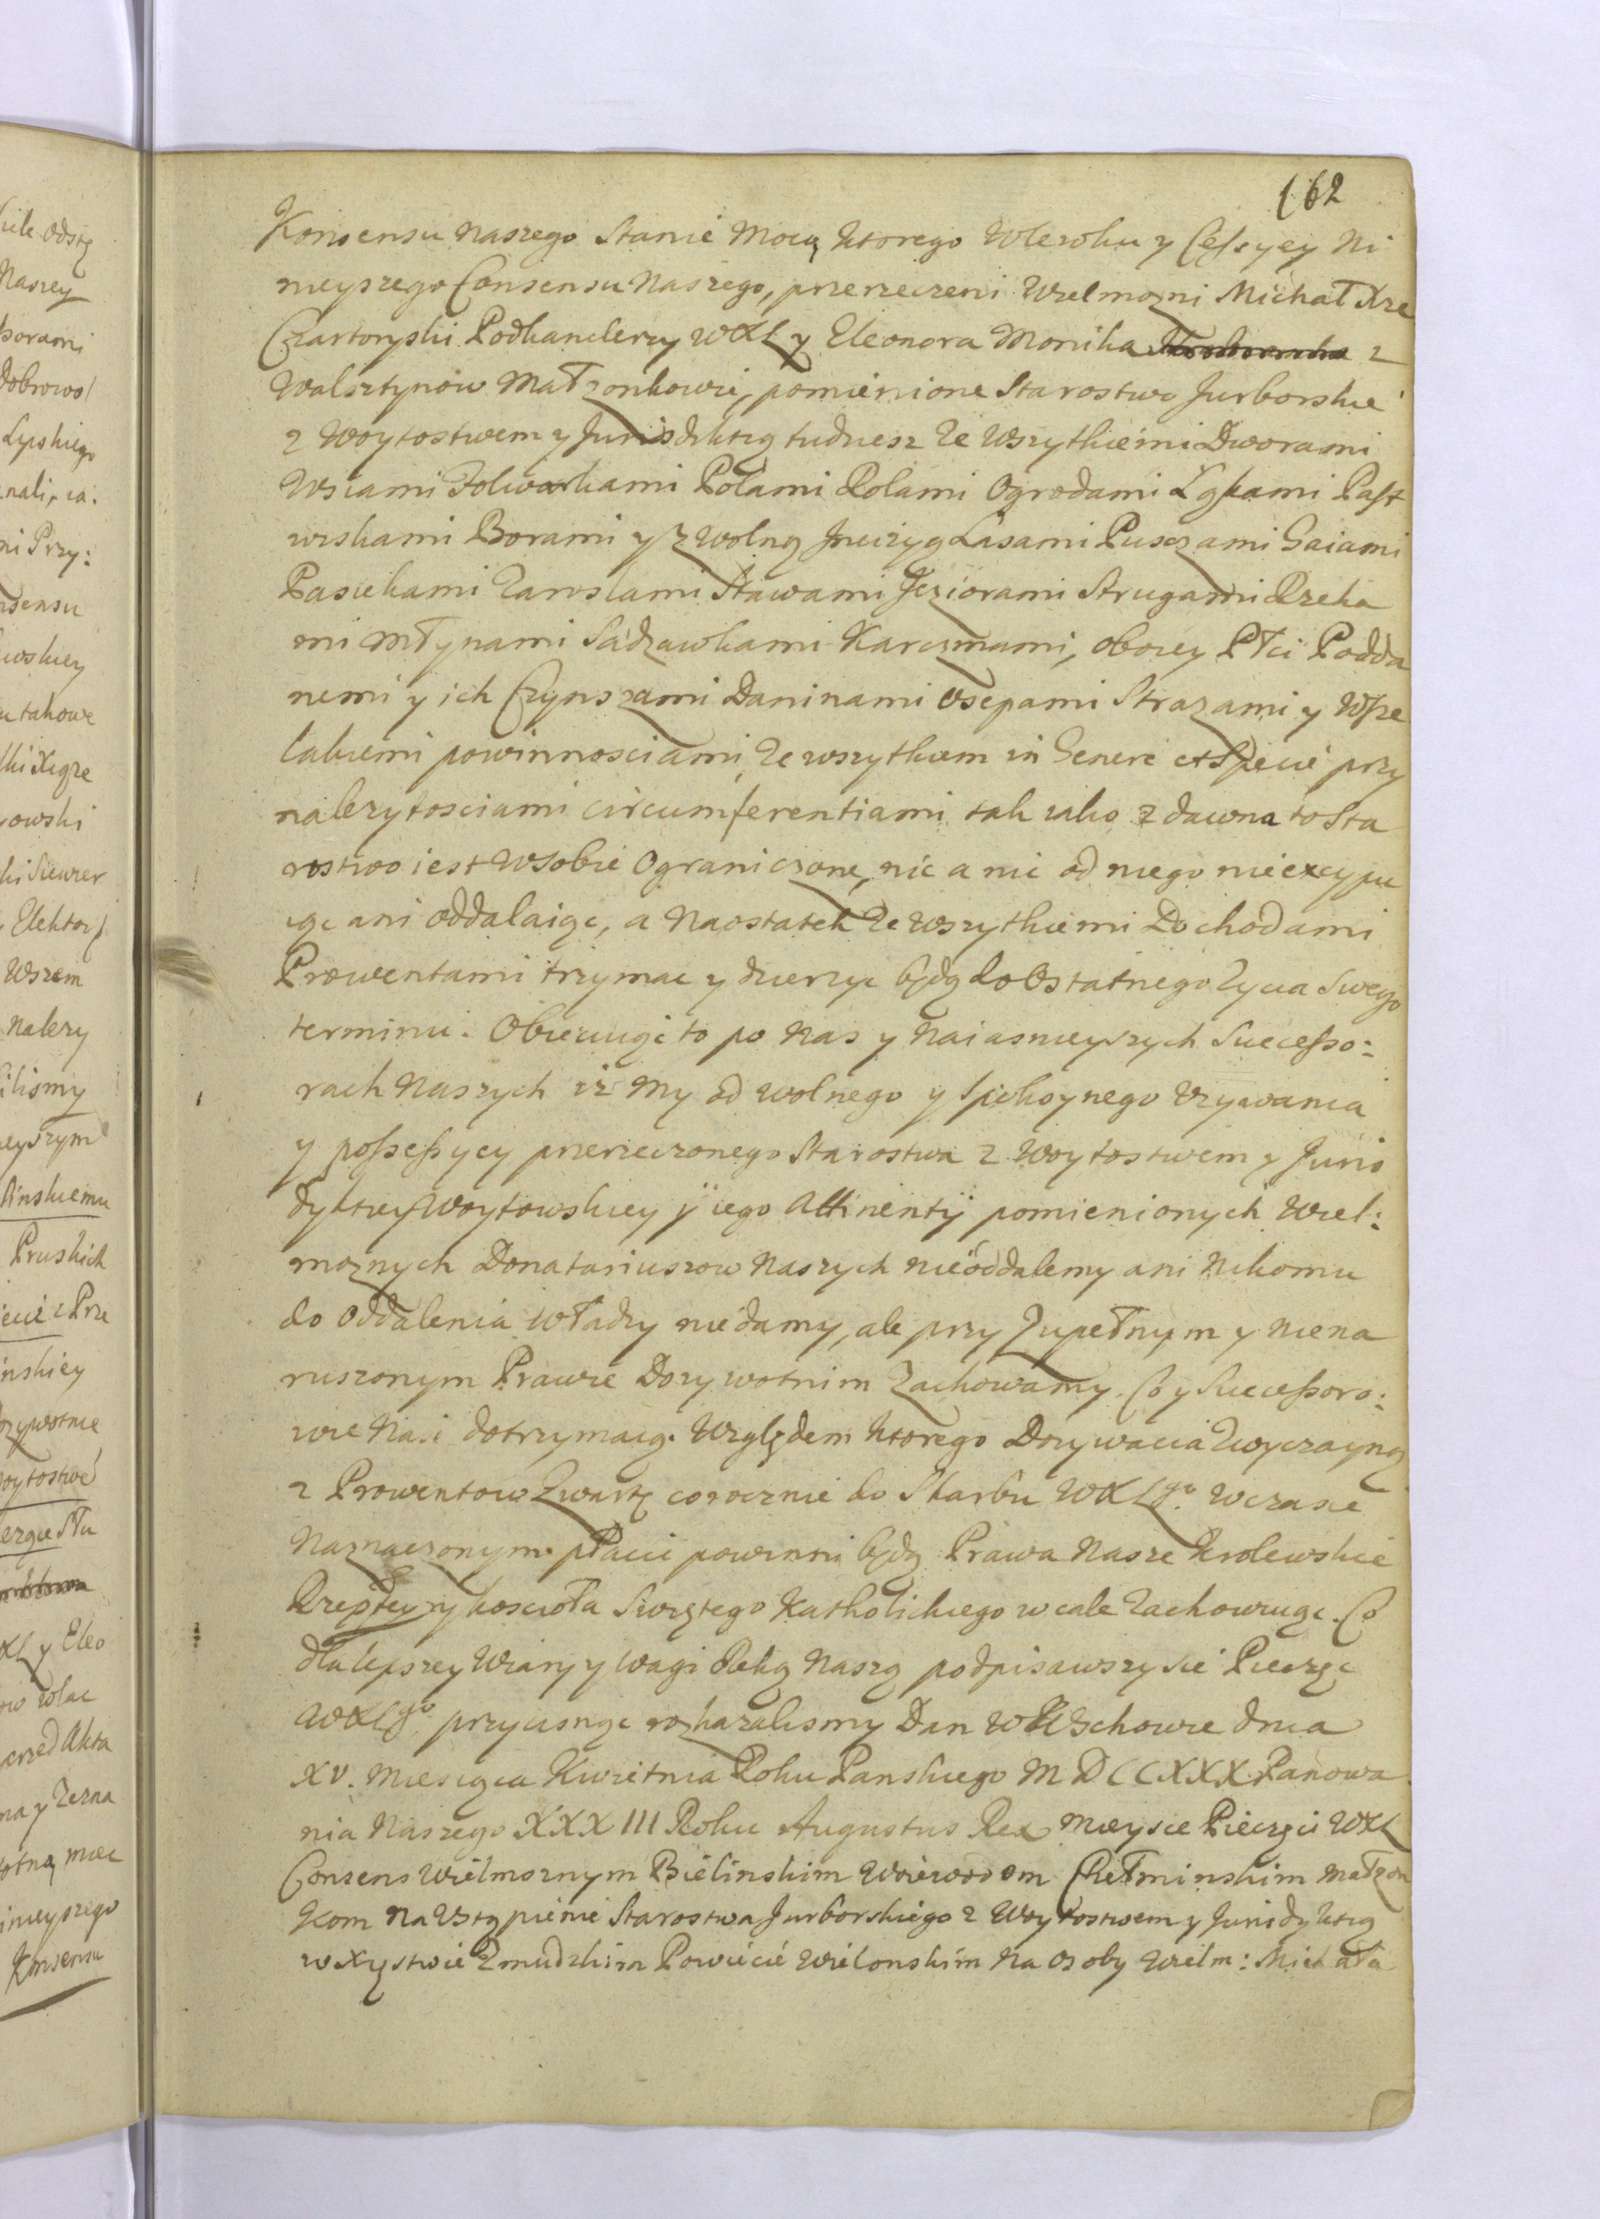 162
Konsensu Naszego Stanie Mocą ktorego Wlewku y Cessyey Ni
nieyszego Consensu Naszego, przerzeczeni Wielmozni Michał Xze
Czartoryski Podkanclerzy WXL y Eleonora Monika z
Walsztynow Małzonkowie, pomienione Starostwo Jurborskie
z Woytostwem y Jurisdikcią tudziesz ze Wszytkiemi Dworami
Wsiami Folwarkami Polami Rolami Ogrodami Łąkami Past
wiskami Borami y z Wolną Lasami Pusczami Gaiami
Pasiekami Zaroslami Stawami Jeziorami Strugami Rzeka
mi Młynami Sadzawkami Karczmami, oboiey Płci Podda
nemi y ich Czynszami Daninami Osepami Strazami y Wsze
lakiemi powinnosciami, ze wszytkiem in Genere et Specie przy
nalezytosciami circumferentiami tak iako z dawna to Sta
rostwo iest W sobie Ograniczone, nic a nic od niego nie excypu
iąc ani oddalaiąc, a Naostatek ze Wszytkiemi Dochodami
Prowentami trzymac y dzierzyc będą do Ostatnego Zycia Swego
terminu. Obiecuiąc to po Nas y Naiasnieyszych Successo:
rach Naszych iż My od wolnego y spokoynego Uzywania
y possessyey przerzeczonego Starostwa z Woytostwem y Juris
dykcyey Woytowskiey y iego Attinentij pomienionych Wiel:
moznych Donatariuszow Naszych nieoddalemy ani Nikomu
do Oddalenia Władzy niedamy, ale przy Zupełnym y niena
ruszonym Prawie Dozywotnim Zachowamy. Co y Successoro:
wie Nasi dotrzymaią. Względem ktorego Dozywocia Zwyczayną
z Prowentow Kwartę corocznie do Skarbu WXLgo Wczasie
Naznaczonym płacic powinni będą Prawa Nasze Krolewskie
Rzeptey y koscioła Swiętego Katholickiego w cale Zachowuiąc. Co
dla lepszey Wiary y Wagi Ręką Naszą podpisawszy sie Pieczęc
WXLgo przycisnąc rozkazalismy Dan W Wschowie dnia
XV. Miesiąca Kwietnia Roku Panskiego MDCCXXX Panowa
nia Naszego XXXIII Roku Augustus Rex Mieysce Pieczęci WXL
Consens Wielmoznym Bielinskim Woiewodom Chełminskim Małzon
kom Na Ustąpienie Starostwa Jurborskiego z Woytostwem y Jurisdykcią
w Xięstwie Zmudzkim Powiecie Wielonskim Na Osoby Wielm: Michała